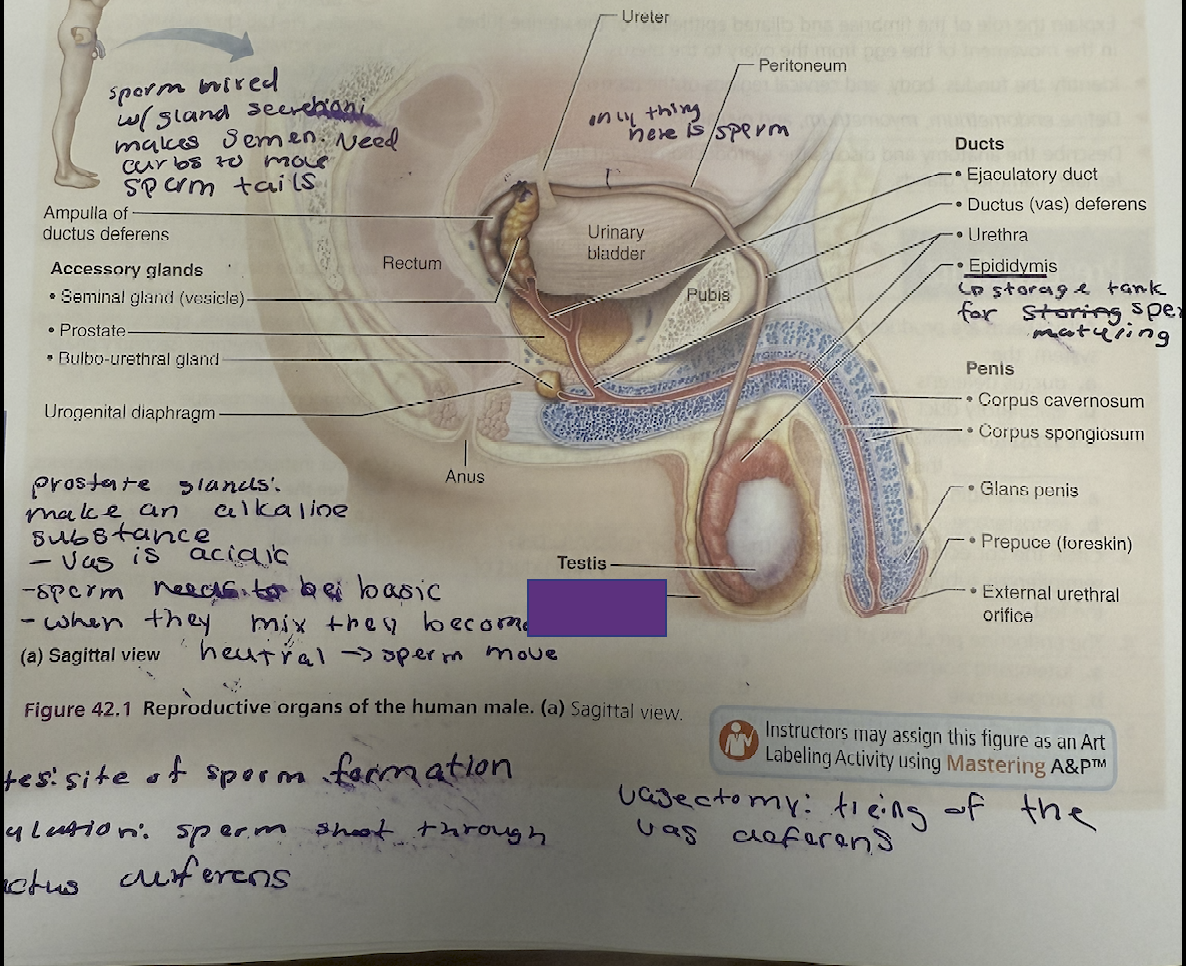 Ureter
Peritoneum
sperm mixed
w/ gland secretions
makes semen. Need
carbs to move
sperm tails
only thing
here is sperm
Ducts
• Ejaculatory duct
• Ductus (vas) deferens
• Urethra
• Epididymis
↳ storage tank
for storing spe
maturing
Ampulla of
ductus deferens
Rectum
Urinary
bladder
Pubis
Accessory glands
• Seminal gland (vesicle)
• Prostate
• Bulbo-urethral gland
Urogenital diaphragm
Anus
Penis
• Corpus cavernosum
• Corpus spongiosum
• Glans penis
• Prepuce (foreskin)
• External urethral
orifice
Testis
prostate glands:
make an alkaline
substance
- vas is acidic
- sperm needs to be basic
- when they mix they become
neutral → sperm move
(a) Sagittal view
Figure 42.1 Reproductive organs of the human male. (a) Sagittal view.
Instructors may assign this figure as an Art
Labeling Activity using Mastering A&P™
tes: site of sperm formation
sperm shoot through
ctus deferens
vasectomy: tieing of the
vas deferens